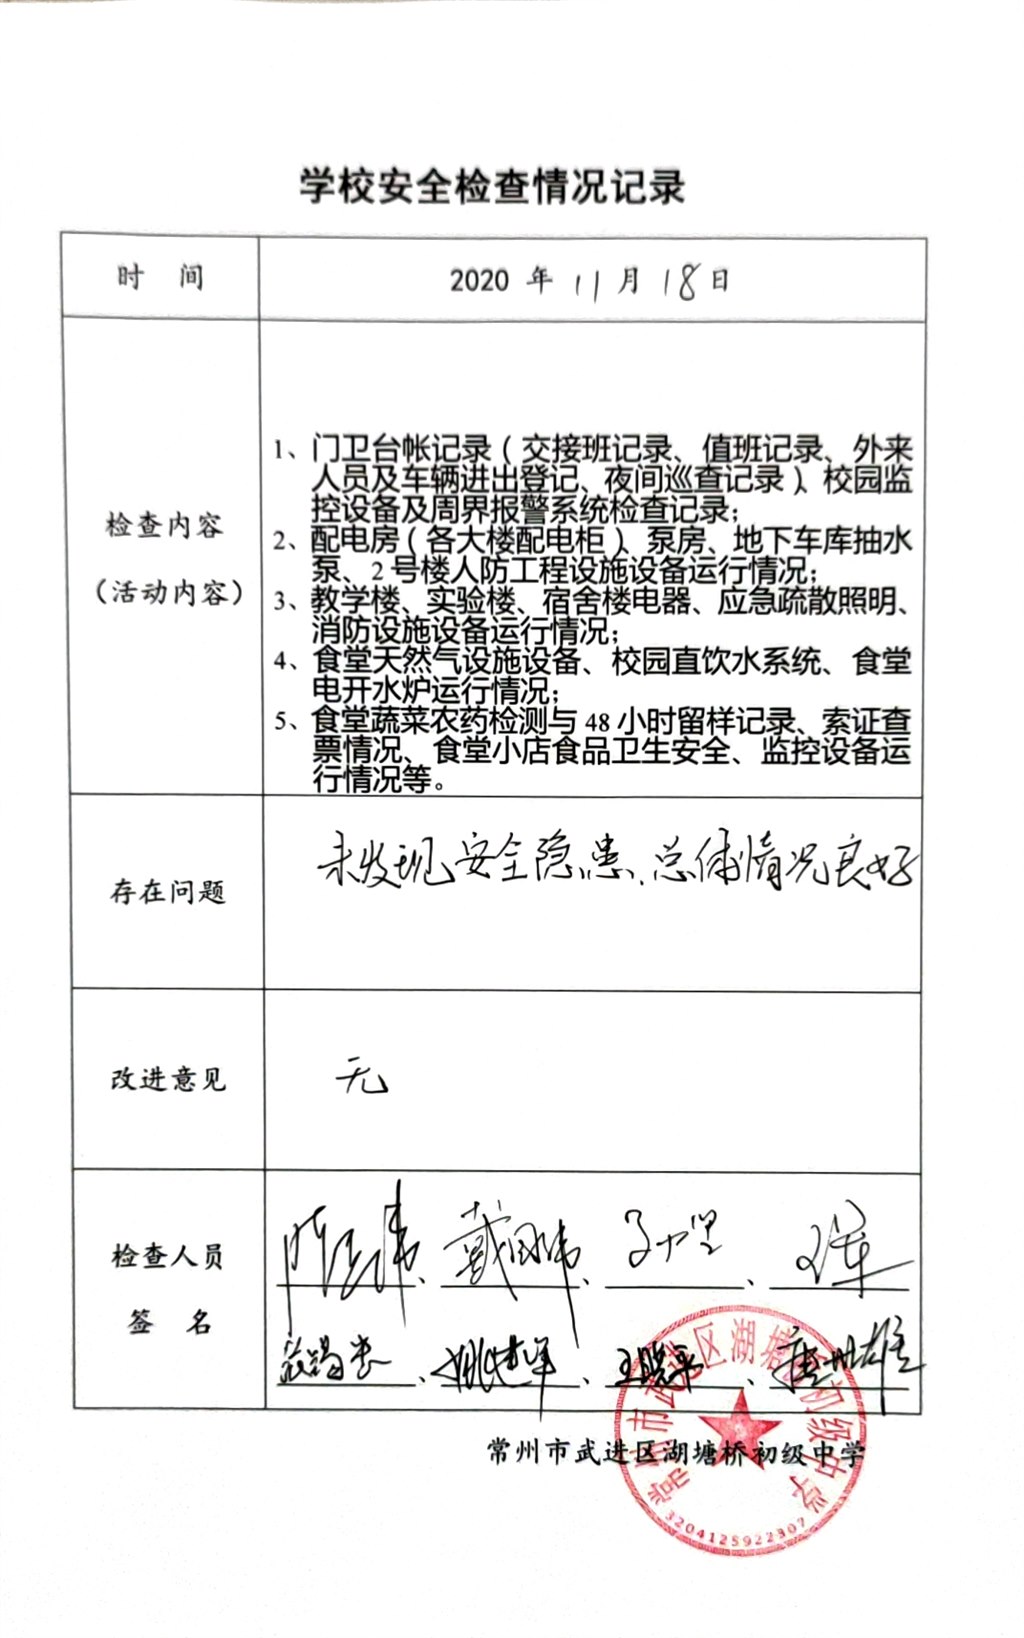 学校安全检查情况记录
时 间
2020 年 11 月 18 日
检查内容
（活动内容）
1、门卫台帐记录（交接班记录、值班记录、外来
人员及车辆进出登记、夜间巡查记录）、校园监
控设备及周界报警系统检查记录；
2、配电房（各大楼配电柜）、泵房、地下车库抽水
泵、2 号楼人防工程设施设备运行情况；
3、教学楼、实验楼、宿舍楼电器、应急疏散照明、
消防设施设备运行情况；
4、食堂天然气设施设备、校园直饮水系统、食堂
电开水炉运行情况；
5、食堂蔬菜农药检测与 48 小时留样记录、索证查
票情况、食堂小店食品卫生安全、监控设备运
行情况等。
存在问题
未发现安全隐患、总体情况良好
改进意见
无
检查人员
签 名
戴国伟
姚建军、王晓平
常州市武进区湖塘桥初级中学
常州市武进区湖塘桥初级中学
3204125922307